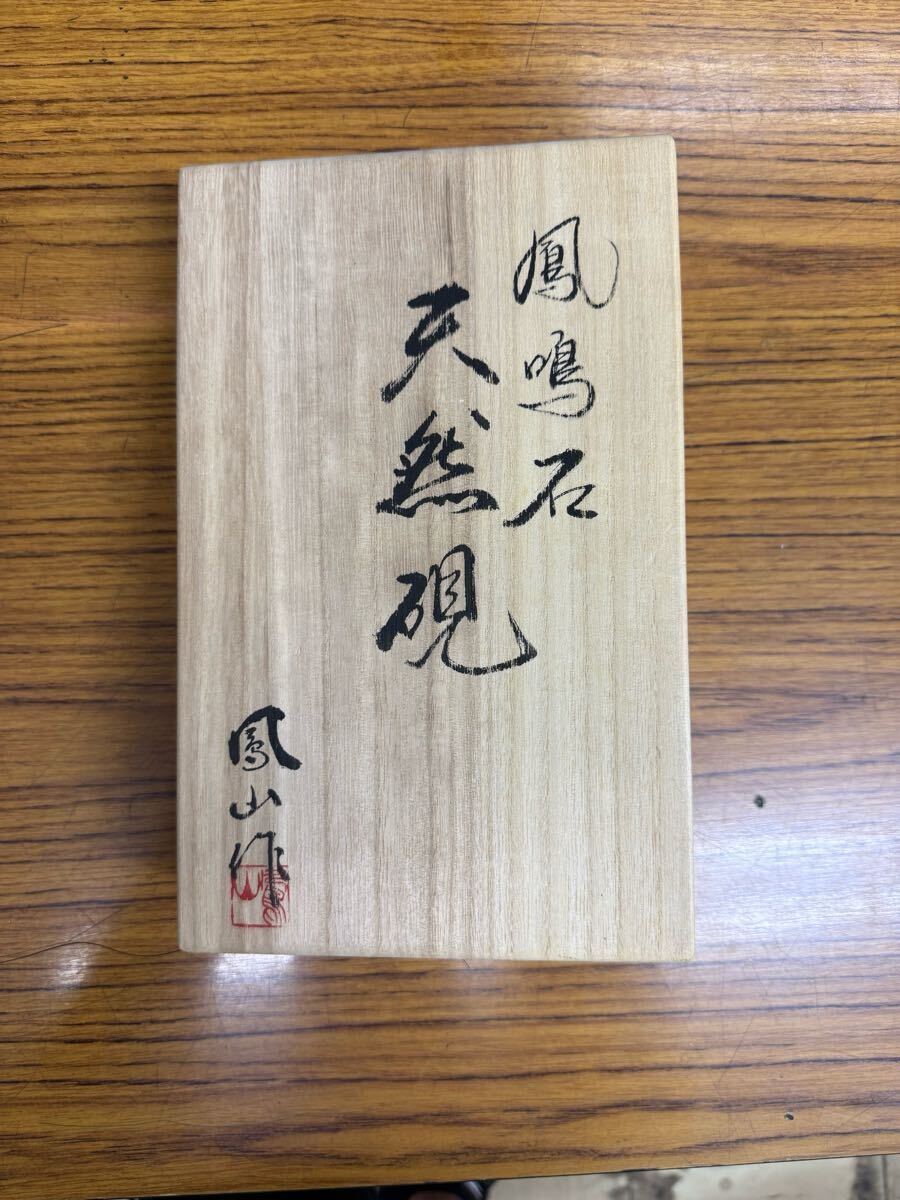 鳳鳴石
天然硯
鳳山作